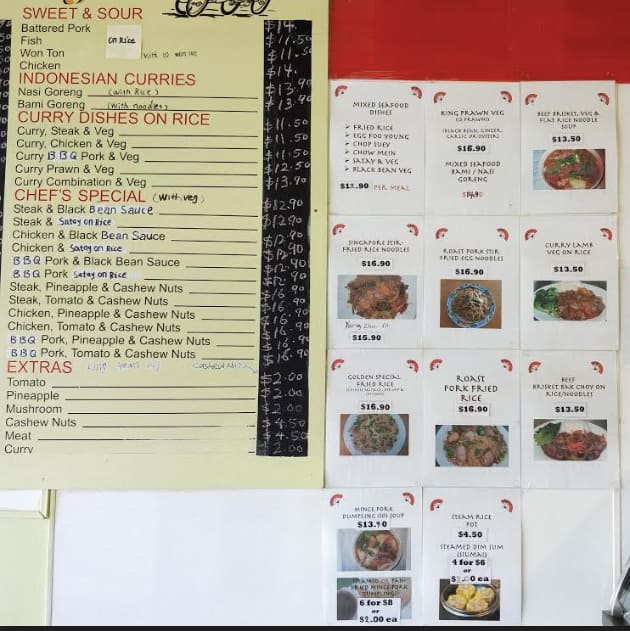 SWEET & SOUR
Battered Pork $14.
Fish $11.50
on Rice
Won Ton $11.50
Chicken $14.
INDONESIAN CURRIES
Nasi Goreng (With Rice) $13.90
Bami Goreng (With noodles) $13.90
CURRY DISHES ON RICE
Curry, Steak & Veg $11.50
Curry, Chicken & Veg $11.50
Curry BBQ Pork & Veg $11.50
Curry Prawn & Veg $12.50
Curry Combination & Veg $13.90
CHEF'S SPECIAL (With veg)
Steak & Black Bean Sauce $12.90
Steak & Satay on Rice $12.90
Chicken & Black Bean Sauce $12.90
Chicken & Satay on Rice $12.90
BBQ Pork & Black Bean Sauce $12.90
BBQ Pork Satay on Rice $12.90
Steak, Pineapple & Cashew Nuts $16.90
Steak, Tomato & Cashew Nuts $16.90
Chicken, Pineapple & Cashew Nuts $16.90
Chicken, Tomato & Cashew Nuts $16.90
BBQ Pork, Pineapple & Cashew Nuts $16.90
BBQ Pork, Tomato & Cashew Nuts $16.90
EXTRAS
Tomato $2.00
Pineapple $2.00
Mushroom $2.00
Cashew Nuts $4.50
Meat $4.50
Curry 2.00
MIXED SEAFOOD
DISHES
➤ FRIED RICE
➤ EGG FOO YOUNG
➤ CHOP SUEY
➤ CHOW MEIN
➤ SATAY & VEG
➤ BLACK BEAN VEG
PER MEAL
KING PRAWN VEG
(BLACK BEAN, GINGER,
GARLIC OR OYSTER)
$16.90
MIXED SEAFOOD
BAMI / NASI
GORENG
BEEF BRISKET, VEG &
FLAT RICE NOODLE
SOUP
$13.50
SINGAPORE STIR-
FRIED RICE NOODLES
$16.90
$16.90
ROAST PORK STIR
FRIED EGG NOODLES
$16.90
CURRY LAMB
VEG ON RICE
$13.50
GOLDEN SPECIAL
FRIED RICE
$16.90
ROAST
PORK FRIED
RICE
$16.90
BEEF
BRISKET BAK CHOY ON
RICE/NOODLES
$13.50
MINCE PORK
DUMPLING SOUP
$13.90
STEAMED OR PAN-
FRIED MINCE PORK
DUMPLINGS
6 for $8
or
$2.00 ea
STEAM RICE
POT
$4.50
STEAMED DIM SUM
(SIUMAI)
4 for $6
or
ea